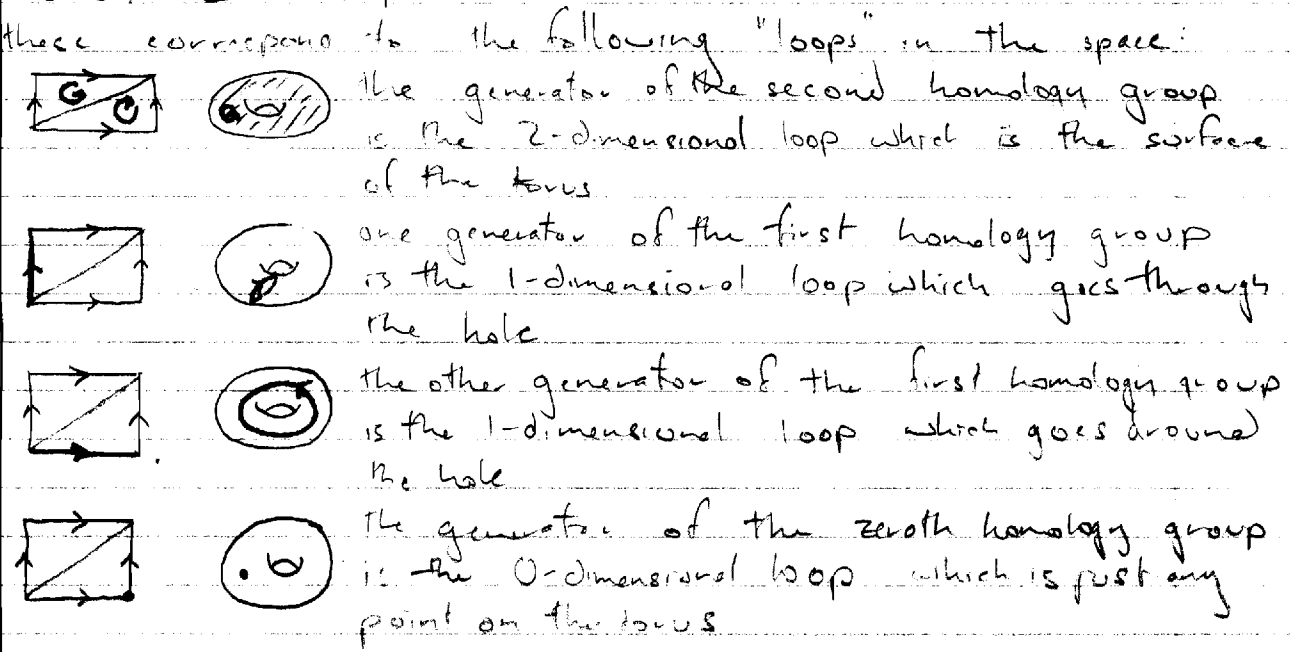 these correspond to the following "loops" in the space:
the generator of the second homology group
is the 2-dimensional loop which is the surface
of the torus
one generator of the first homology group
is the 1-dimensional loop which goes through
the hole
the other generator of the first homology group
is the 1-dimensional loop which goes around
the hole
the generator of the zeroth homology group
is the 0-dimensional loop which is just any
point on the torus